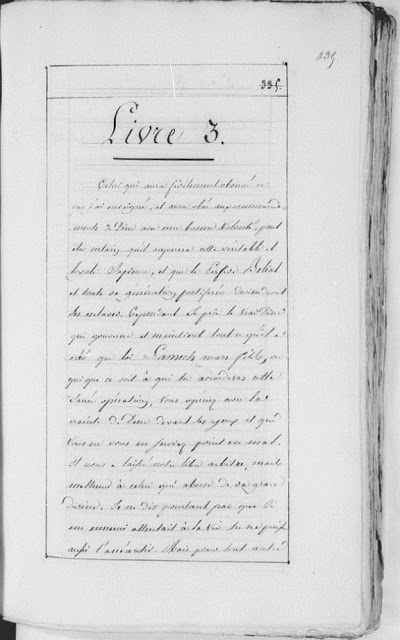 235
335.
Livre 3.
Celui qui aura fidèlement observé ce
que j'ai enseigné, et aura obéi aux commande
ments de Dieu avec une bonne volonté, peut
être certain qu'il acquerra cette véritable et
loyale Sapience, et que le Perfide Belial
et toute sa génération pestiférée deviendront
ses esclaves. Cependant Je prie le vrai Dieu
qui gouverne et maintient tout ce qu'il a
créé que toi Lamech mon fils, ou
qui que ce soit à qui tu accorderas cette
Sainte opération, vous opériez avec la
crainte de Dieu devant les yeux et que
Vous ne vous en serviez point en mal.
Il nous a laissé notre libre arbitre, mais
malheur à celui qui abuse de sa grace
divine. Je ne dis pourtant pas que Si
un ennemi attentait à ta Vie tu ne puisse
aussi l'anéantir. Mais pour tout autre